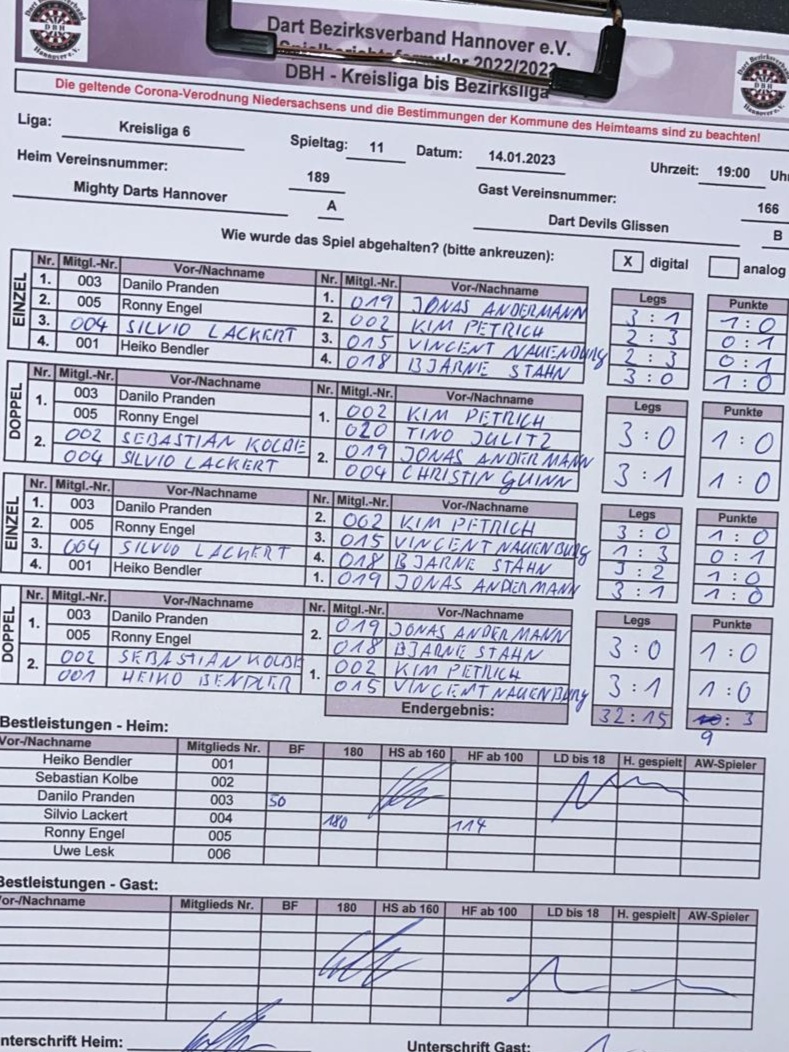 Dart Bezirksverband Hannover e.V.
Spielberichtsformular 2022/2023
DBH - Kreisliga bis Bezirksliga
Die geltende Corona-Verodnung Niedersachsens und die Bestimmungen der Kommune des Heimteams sind zu beachten!
Liga: Kreisliga 6 Spieltag: 11 Datum: 14.01.2023 Uhrzeit: 19:00 Uh
Heim Vereinsnummer: 189 Gast Vereinsnummer: 166
Mighty Darts Hannover A Dart Devils Glissen B
Wie wurde das Spiel abgehalten? (bitte ankreuzen): X digital analog
EINZEL
Nr. Mitgl.-Nr. Vor-/Nachname Nr. Mitgl.-Nr. Vor-/Nachname Legs Punkte
1. 003 Danilo Pranden 1. 019 JONAS ANDERMANN 3 : 1 1 : 0
2. 005 Ronny Engel 2. 002 KIM PETRICH 2 : 3 0 : 1
3. 004 SILVIO LACKERT 3. 015 VINCENT NAUENBURG 2 : 3 0 : 1
4. 001 Heiko Bendler 4. 018 BJARNE STAHN 3 : 0 1 : 0
DOPPEL
Nr. Mitgl.-Nr. Vor-/Nachname Nr. Mitgl.-Nr. Vor-/Nachname Legs Punkte
1. 003 Danilo Pranden 1. 002 KIM PETRICH 3 : 0 1 : 0
005 Ronny Engel 020 TINO JULITZ
2. 002 SEBASTIAN KOLBE 2. 019 JONAS ANDERMANN 3 : 1 1 : 0
004 SILVIO LACKERT 004 CHRISTIN GUINN
EINZEL
Nr. Mitgl.-Nr. Vor-/Nachname Nr. Mitgl.-Nr. Vor-/Nachname Legs Punkte
1. 003 Danilo Pranden 2. 002 KIM PETRICH 3 : 0 1 : 0
2. 005 Ronny Engel 3. 015 VINCENT NAUENBURG 1 : 3 0 : 1
3. 004 SILVIO LACKERT 4. 018 BJARNE STAHN 3 : 2 1 : 0
4. 001 Heiko Bendler 1. 019 JONAS ANDERMANN 3 : 1 1 : 0
DOPPEL
Nr. Mitgl.-Nr. Vor-/Nachname Nr. Mitgl.-Nr. Vor-/Nachname Legs Punkte
1. 003 Danilo Pranden 2. 019 JONAS ANDERMANN 3 : 0 1 : 0
005 Ronny Engel 018 BJARNE STAHN
2. 002 SEBASTIAN KOLBE 1. 002 KIM PETRICH 3 : 1 1 : 0
001 HEIKO BENDLER 015 VINCENT NAUENBURG
Endergebnis: 32 : 15 : 3
9
Bestleistungen - Heim:
Vor-/Nachname Mitglieds Nr. BF 180 HS ab 160 HF ab 100 LD bis 18 H. gespielt AW-Spieler
Heiko Bendler 001
Sebastian Kolbe 002
Danilo Pranden 003 50
Silvio Lackert 004 180 114
Ronny Engel 005
Uwe Lesk 006
Bestleistungen - Gast:
Vor-/Nachname Mitglieds Nr. BF 180 HS ab 160 HF ab 100 LD bis 18 H. gespielt AW-Spieler
nterschrift Heim: Unterschrift Gast: